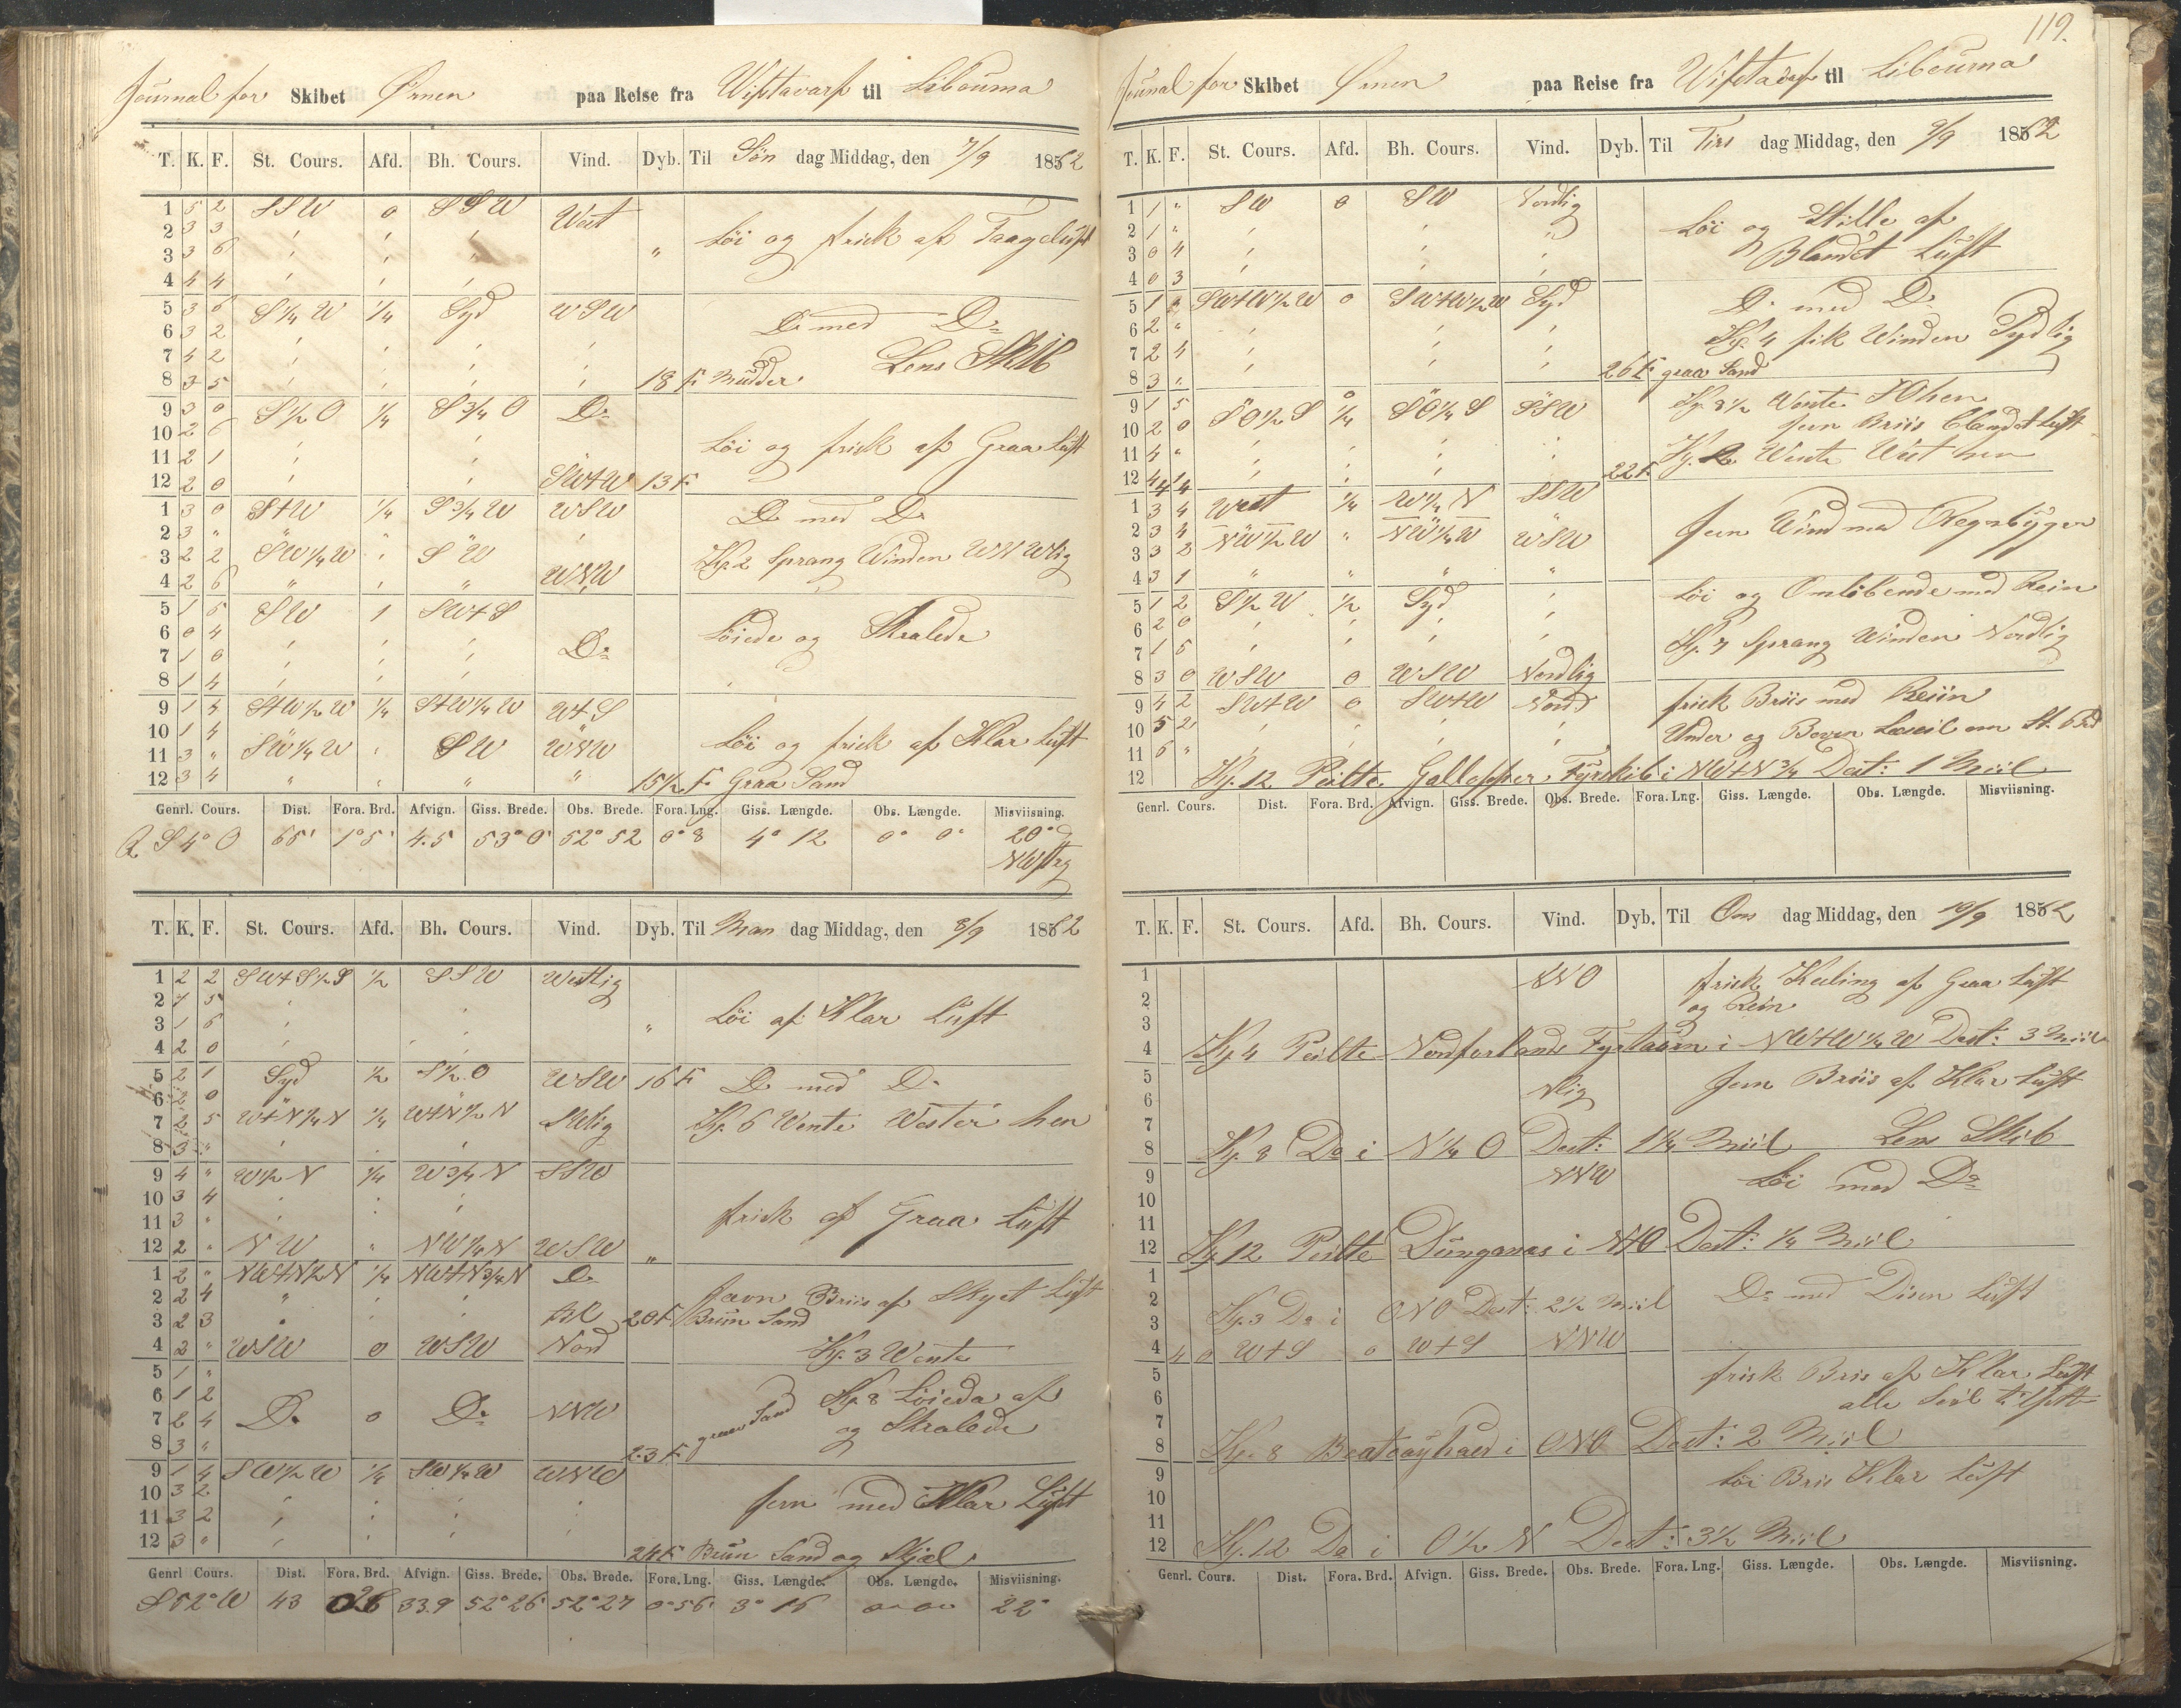 Journal for Skibet Ørnen paa Reise fra Wiftavarf til Libourna
T. K. F. St. Cours. Afd. Bh. Cours. Vind. Dyb. Til Søn dag Middag, den 7/9 1862
1 5 2 SSW 0 SSW West
2 3 3 Löi og frisk af Taageluft
3 3 6 "
4 4 4
5 3 6 S 1/4 W 1/4 Syd WSW Do med Do
6 3 2
7 4 2 Lens Skib
8 3 5 18 F. Mudder
9 3 0 S 1/2 O 1/4 S 3/4 O Do
10 2 6 Löi og frisk af Graa Luft
11 2 1
12 2 0 SW+W 13 F.
1 3 0 S+W 1/4 S 3/4 W WSW Do med Do
2 3 "
3 2 2 SW 1/4 W " SW Kl. 2 Sprang Winden WNWlig
4 2 6 " " WNW
5 1 5 SW 1 SW+S
6 0 4 Löiede og Skralede
7 1 0 Do
8 1 4
9 1 4 S+W 1/2 W 1/4 S+W 1/4 W W+S
10 1 4 Löi og frisk af Klar Luft
11 3 " SW 1/4 W SW WNW
12 3 4 " " " " 15 1/2 F. Graa Sand
Genrl. Cours. Dist. Fora. Brd. Afvign. Giss. Brede. Obs. Brede. Fora. Lng. Giss. Længde. Obs. Længde. Misviisning.
S 4° O 65' 1° 5' 4.5 53° 0' 52° 52 0° 8 4° 12 0° 0° 20°
NWstrg
T. K. F. St. Cours. Afd. Bh. Cours. Vind. Dyb. Til Man dag Middag, den 8/9 1862
1 2 2 SW+S 1/2 S 1/2 SSW Westlig
2 1 5
3 1 6 " Löi af Klar Luft
4 2 0
5 2 1 Syd 1/2 S 1/2 O WSW 16 F. Do med Do
6 2 0
7 2 5 W+N 1/4 N 1/4 W+N 1/2 N SWlig Kl. 6 Wente Wester hen
8 3 "
9 4 " W 1/2 N 1/4 W 3/4 N SSW
10 3 4
11 3 " frisk af Graa Luft
12 2 " NW " NW 1/4 N WSW "
1 2 " NW+N 1/2 N 1/4 NW+N 3/4 N Do
2 2 4 Jævn Briis af Skyet Luft
3 2 3 20 F. Brun Sand
4 2 " WSW 0 WSW Nord Kl. 3 Wente
5 1 "
6 1 2 Kl. 8 Löieda af
7 2 4 Do 0 Do NNW Sand og Skralede
8 3 " 23 F.
9 1 4 SW 1/2 W 1/4 SW 1/4 W WNW
10 3 2 jevn med Klar Luft
11 3 2
12 3 " 24 F. Brun Sand og Skjæl
Genrl Cours. Dist. Fora. Brd. Afvign. Giss. Brede. Obs. Brede. Fora. Lng. Giss. Længde. Obs. Længde. Misviisning.
S 52° W 43 26 33.9 52° 26' 52° 27 0° 56' 3° 16 0° 0° 22°
119.
Journal for Skibet Ørnen paa Reise fra Wiftavarf til Libourna
T. K. F. St. Cours. Afd. Bh. Cours. Vind. Dyb. Til Tirs dag Middag, den 9/9 1862
1 1 " SW 0 SW Nordlig
2 1 " Löi og Stille af
3 0 4 Blandet Luft
4 0 3
5 1 SW+W 1/2 W 0 SW+W 1/2 W Syd Do med Do
6 2 " Kl. 4 fik Winden Sydlig
7 2 4
8 3 " 26 F. graa Sand
9 1 5 SO 1/2 S 1/4 SO 1/4 S SSW Kl. 8 1/2 Wente SO hen
10 2 0 jevn Briis blandet Luft
11 4 "
12 4 4 22 F. Kl. 12 Wente West hen
1 3 4 West 1/4 W 1/4 N SSW
2 3 4 Jevn Wind med Regnbyger
3 3 3 NW 1/2 W " NW 1/4 W WSW
4 3 1 " " " "
5 1 2 S 1/2 W 1/2 Syd Löi og Omlöbende med Rein
6 2 0
7 1 5 Kl. 7 Sprang Winden Nordlig
8 3 0 WSW 0 WSW Nordlig
9 4 2 SW+W 0 SW+W Nord frisk Briis med Reiin
10 5 2 Under og Boven Læseil om St. B
11 6 "
12 Kl. 12 Peilte Gallopper Fyrskib i NW+N 3/4 Dest: 1 Miil
Genrl. Cours. Dist. Fora. Brd. Afvign. Giss. Brede. Obs. Brede. Fora. Lng. Giss. Længde. Obs. Længde. Misviisning.
T. K. F. St. Cours. Afd. Bh. Cours. Vind. Dyb. Til Ons dag Middag, den 10/9 1862
1 NNO frisk Kuling af Graa Luft
2 og Rein
3
4 Kl. 4 Peilte Nordforlands Fyrtaarn i NW+W 1/4 W Dest: 3 Miil
5 Nlig Jevn Briis af Klar Luft
6
7
8 Kl. 8 Do i N 1/4 O Dest: 1 1/4 Miil Lens Skib
9 NNW Löi med Do
10
11
12 Kl. 12 Peilte Dungenæs i N+O Dest: 1/4 Miil
1 Do med Disen Luft
2
3 Kl. 3 Do i ONO Dest: 2 1/2 Miil
4 4 0 W+S 0 W+S NNW
5 frisk Bris af Klar Luft
6 alle Seil til
7
8 Kl. 8 i ONO Dest: 2 Miil
9 Löi Bris Klar Luft
10
11
12 Kl. 12 Do i O 1/2 N Dest: 3 1/2 Miil
Genrl. Cours. Dist. Fora. Brd. Afvign. Giss. Brede. Obs. Brede. Fora. Lng. Giss. Længde. Obs. Længde. Misviisning.